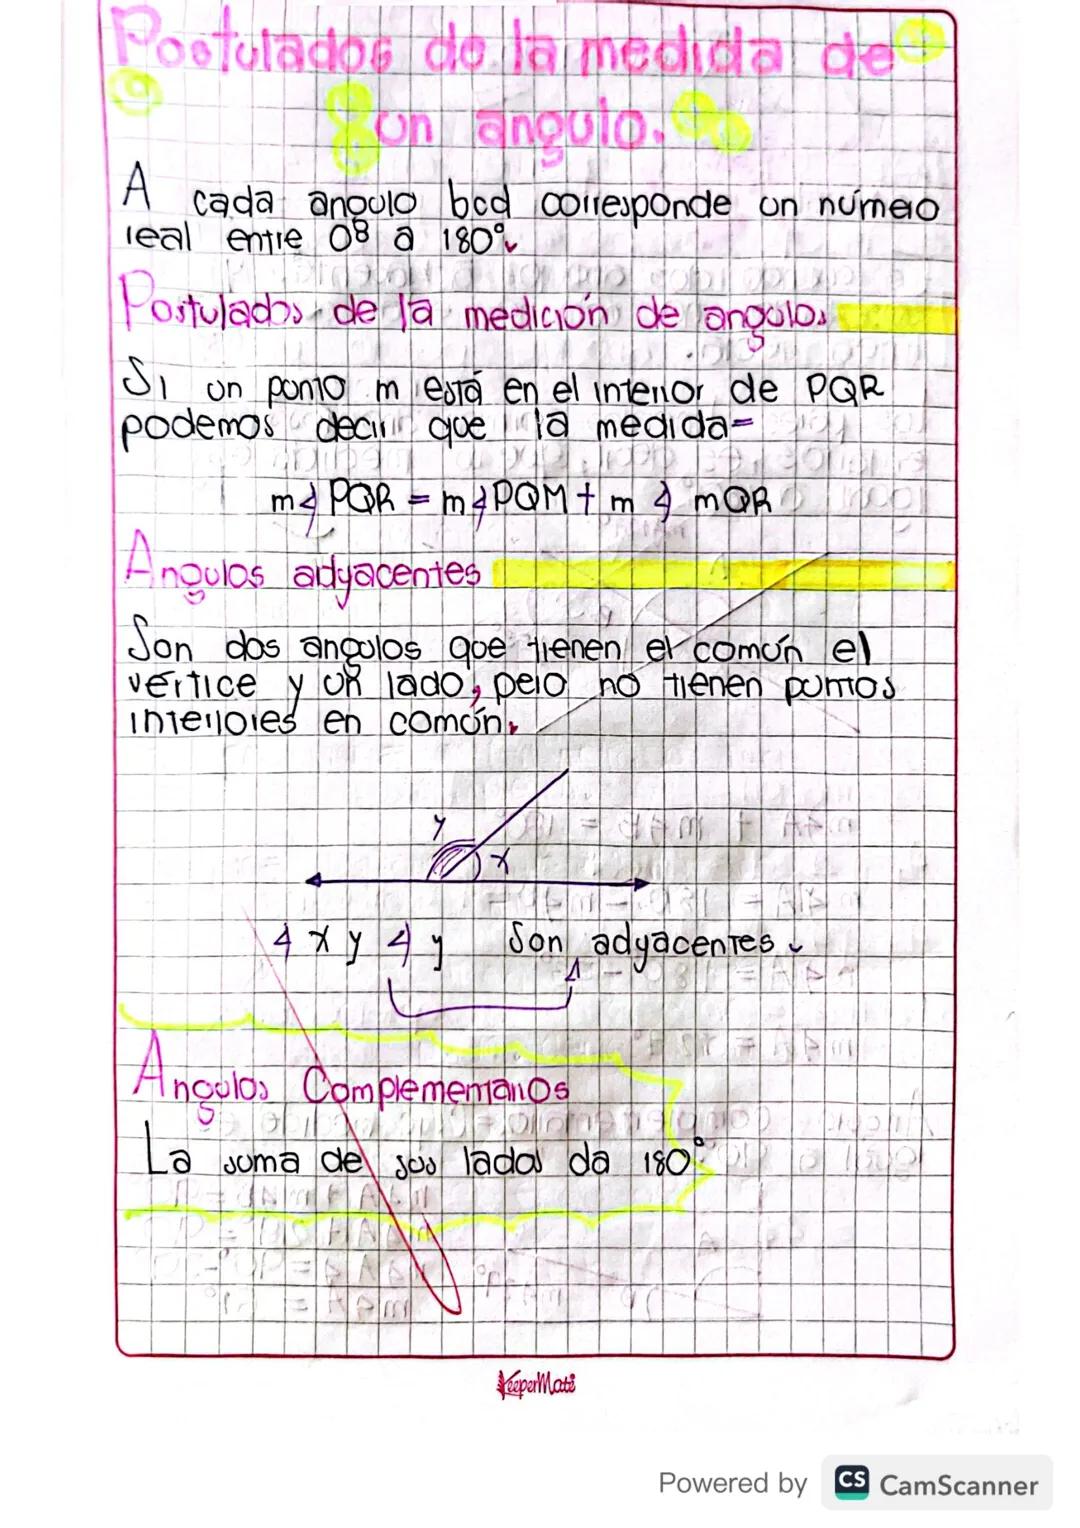 Postulados de la medida de
un angulo.
A cada angulo bcd corresponde un número
real entre 0° a 180°.
Postulados de la medición de angulos
Si un punto m está en el interior de PQR
podemos decir que la medida=
m∢ PQR = m∢PQM + m ∢ mQR
Angulos adyacentes
Son dos angulos que tienen el común el
vértice y un lado, pero no tienen puntos
interiores en común.
y
x
∢ x y ∢ y Son adyacentes.
Angulos Complementarios
La suma de sus lados da 180°
KeeperMate
Powered by CS CamScanner